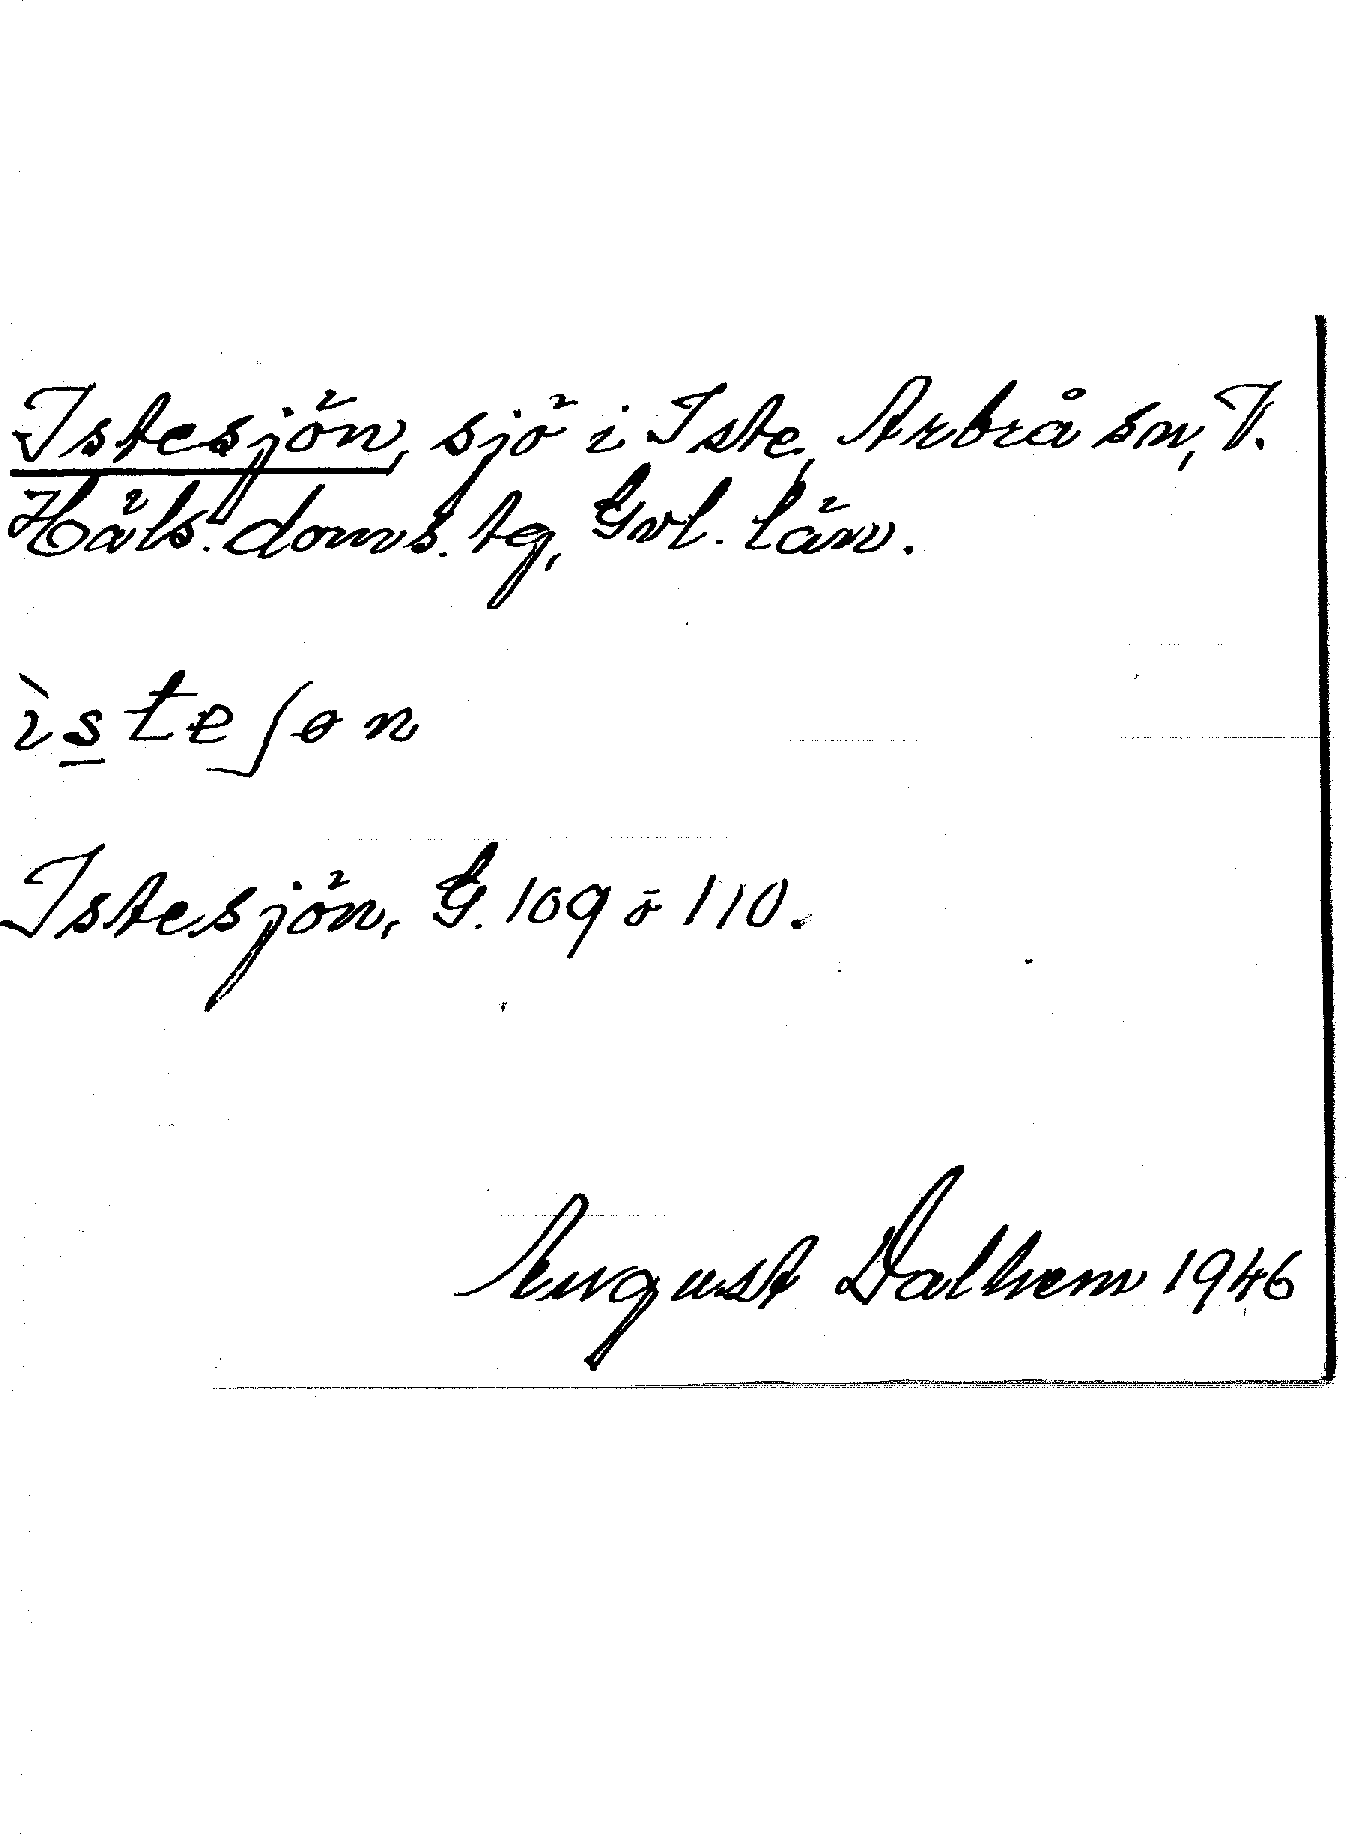 Istesjön, sjö i Iste, Arbrå sn, V.
Häls. doms. tg, Gvl. län.
ìs̲teʃøn
Istesjön, G. 109 ö 110.
August Dalhem 1946